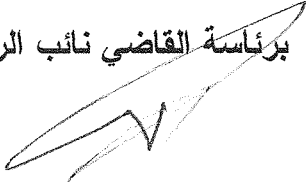 برئاسة القاضي نائب الر